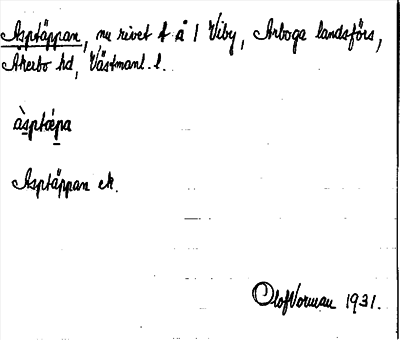 Asptäppan, nu rivet t å 1 Viby, Arboga landsförs,
Åkerbo hd, Västmanl. l.
àsptæpa
Asptäppan ek.
Olof Vorman 1931.